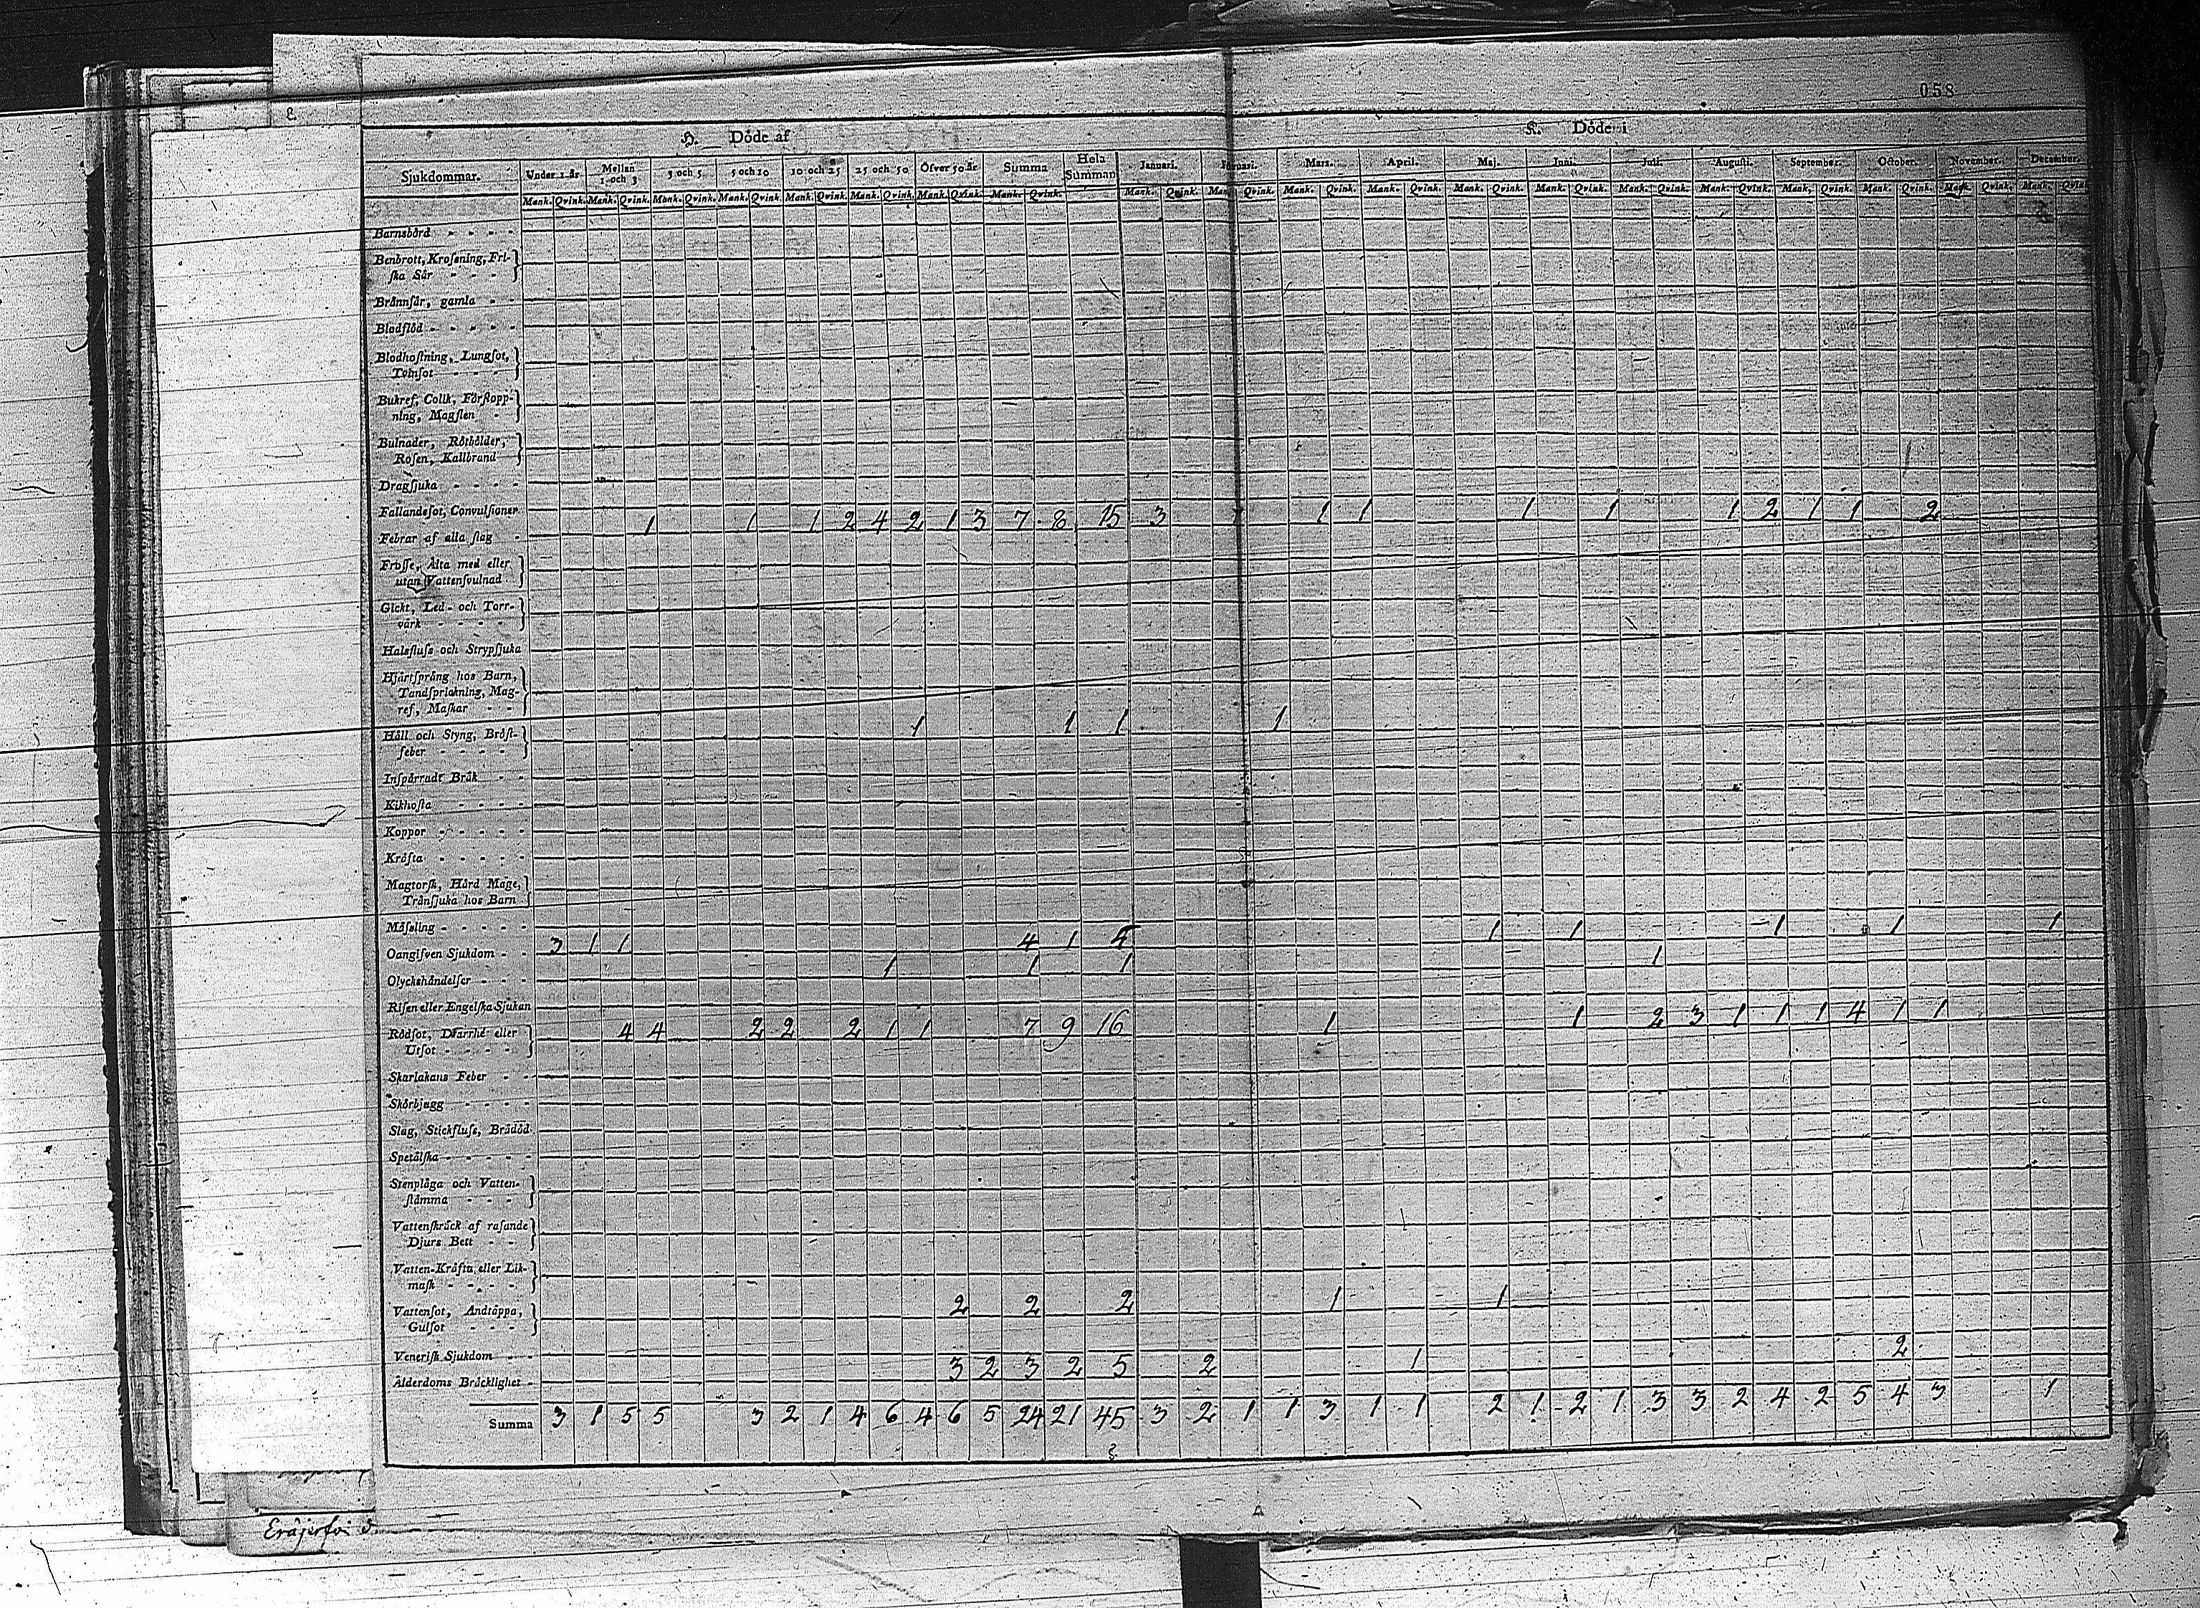 058
H. Döde af
K. Döde i
Sjukdommar. Under 1 år Mellan 1 och 3 3 och 5 5 och 10 10 och 25 25 och 50 Öfver 50 år Summa Hela Summan Januari. Mars. April. Maj. Juni. Juli. Augusti. September. October. November. December.
Mank. Qvink. Mank. Qvink. Mank. Qvink. Mank. Qvink. Mank. Qvink. Mank. Qvink. Mank. Qvink. Mank. Qvink. Mank. Qvink. Mank. Qvink. Mank. Qvink. Mank. Qvink. Mank. Qvink. Mank. Qvink. Mank. Qvink. Mank. Qvink. Mank. Qvink. Mank. Qvink. Mank. Qvink. Mank. Qvink.
Barnsbörd
Benbrott, Krosning, Fri-
ska Sår
Brännsår, gamla
Blodflöd
Blodhostning, Lungsot,
Tvinsot
Bukref, Colik, Förstopp-
ning, Magsten
Bulnader, Rötbölder,
Rosen, Kallbrand
Dragsjuka
Fallandesot, Convulsioner
Febrar af alla slag 1 1 1 2 4 2 1 3 7 8 15 3 1 1 1 1 1 1 2 1 1 2
Frosse, Älta med eller
utan Vattensvulnad
Gickt, Led- och Torr-
värk
Halsfluss och Strypsjuka
Hjärtsprång hos Barn,
Tandsprickning, Mag-
ref, Maskar
Håll och Styng, Bröst-
feber 1 1 1 1
Inspärradt Bråk
Kikhosta
Koppor
Kräfta
Magtorsk, Hård Mage,
Trånsjuka hos Barn
Mässling
Oangifven Sjukdom 3 1 1 4 1 5 1 1 1 1 1
Olyckshändelser 1 1 1 1
Risen eller Engelska Sjukan
Rödsot, Diarrhé eller
Utsot 4 4 2 2 2 1 1 7 9 16 1 1 2 3 1 1 1 4 1 1
Skarlakans Feber
Skörbjugg
Slag, Stickfluss, Brådöd
Spetälska
Stenplåga och Vatten-
stämma
Vattenskräck af rasande
Djurs Bett
Vatten-Kräfta eller Lik-
mask
Vattensot, Andtäppa,
Gulsot 2 2 2 1 1
Venerisk Sjukdom
Ålderdoms Bräcklighet 3 2 3 2 5 2 1 2
Summa 3 1 5 5 3 2 1 4 6 4 6 5 24 21 45 3 2 1 1 3 1 1 2 1 2 1 3 3 2 4 2 5 4 3 1